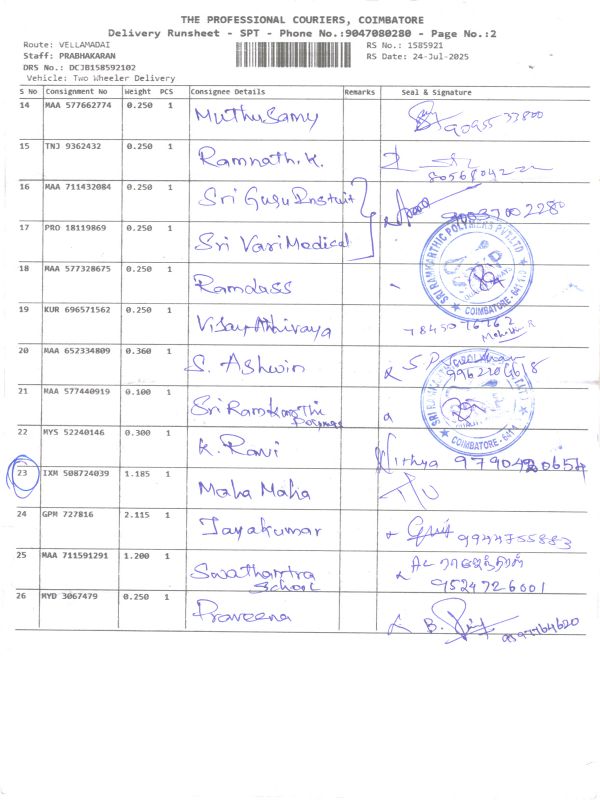 THE PROFESSIONAL COURIERS, COIMBATORE
Delivery Runsheet - SPT - Phone No.:9047080280 - Page No.:2
Route: VELLAMADAI RS No.: 1585921
Staff: PRABHAKARAN RS Date: 24-Jul-2025
DRS No.: DCJB158592102
Vehicle: Two Wheeler Delivery
S No Consignment No Weight PCS Consignee Details Remarks Seal & Signature
14 MAA 577662774 0.250 1 Muthusamy 9095533800
15 TNJ 9362432 0.250 1 Ramnath.K.
16 MAA 711432084 0.250 1 Sri Guru Instuit
17 PRO 18119869 0.250 1 Sri Vari Medical
SRI RAMKARTHIC POLYMERS PVT LTD
COIMBATORE
18 MAA 577328675 0.250 1 Ramdass
19 KUR 696571562 0.250 1
20 MAA 652334809 0.360 1 S. Ashwin
21 MAA 577440919 0.100 1 Sri Ramkarthi
COIMBATORE
22 MYS 52240146 0.300 1 K. Rani Nithya
23 IXM 508724039 1.185 1 Maha Maha
24 GPM 727816 2.115 1 Jayakumar 9944755883
25 MAA 711591291 1.200 1 Swathantra
School 9524726001
26 MYD 3067479 0.250 1 Praveena B.